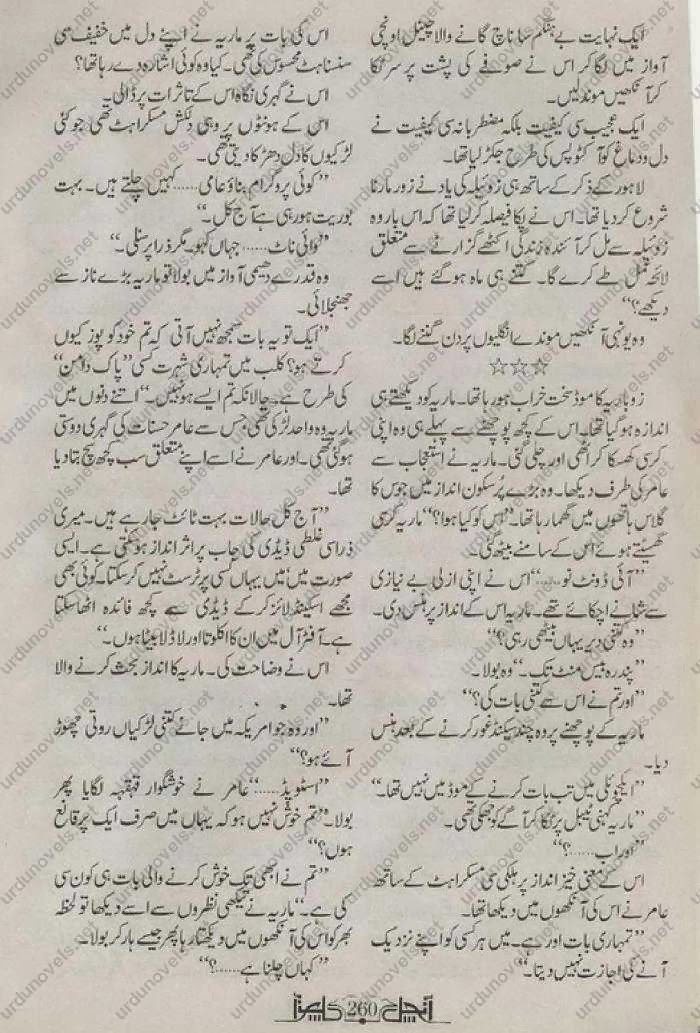 ایک نہایت بے ہنگم سا ناچ گانے والا چینل اونچی
آواز میں لگا کر اس نے صوفے کی پشت پر سر ٹکا
کر آنکھیں موند لیں۔
ایک عجیب سی کیفیت بلکہ مضطربانہ سی کیفیت نے
دل و دماغ کو آکٹوپس کی طرح جکڑ لیا تھا۔
لاہور کے ذکر کے ساتھ ہی زوئیلہ کی یاد نے زور مارنا
شروع کر دیا تھا۔ اس نے پکا فیصلہ کر لیا تھا کہ اس بار وہ
زوئیلہ سے مل کر آئندہ زندگی اکٹھے گزارنے سے متعلق
لائحہ عمل طے کرے گا۔ کتنے ہی ماہ ہو گئے ہیں اسے
دیکھے؟“
وہ یونہی آنکھیں موندے انگلیوں پر دن گننے لگا۔
☆☆☆
زوباریہ کا موڈ سخت خراب ہو رہا تھا۔ ماریہ کو دیکھتے ہی
اندازہ ہو گیا تھا۔ اس کے کچھ پوچھنے سے پہلے ہی وہ اپنی
کرسی کھسکا کر اٹھی اور چلی گئی۔ ماریہ نے استعجاب سے
عامر کی طرف دیکھا۔ وہ بڑے پُر سکون انداز میں جوس کا
گلاس ہاتھوں میں گھما رہا تھا۔ ”اس کو کیا ہوا؟“ ماریہ کرسی
گھسیٹتے ہوئے اس کے سامنے بیٹھ گئی۔
”آئی ڈونٹ نو……“ اس نے اپنی ازلی بے نیازی
سے شانے اچکائے تھے۔ ماریہ اس کے انداز پر ہنس دی۔
”وہ کتنی دیر یہاں بیٹھی رہی؟“
”پندرہ بیس منٹ تک۔“ وہ بولا۔
”اور تم نے اس سے کتنی بات کی؟“
ماریہ کے پوچھنے پر وہ چند سیکنڈ غور کرنے کے بعد ہنس
دیا۔
”ایکچوئلی میں تب بات کرنے کے موڈ میں نہیں تھا۔“
”ماریہ کہنی ٹیبل پر ٹکا کر آگے کو جھکی تھی۔
”اور اب……؟“
اس کے معنی خیز انداز پر ہلکی سی مسکراہٹ کے ساتھ
عامر نے اس کی آنکھوں میں دیکھا تھا۔
”تمہاری بات اور ہے۔ میں ہر کسی کو اپنے نزدیک
آنے کی اجازت نہیں دیتا۔“
اس کی بات پر ماریہ نے اپنے دل میں خفیف سی
سنسناہٹ محسوس کی تھی۔ کیا وہ کوئی اشارہ دے رہا تھا؟
اس نے گہری نگاہ اس کے تاثرات پر ڈالی۔
اس کے ہونٹوں پر وہی دلکش مسکراہٹ تھی جو کئی
لڑکیوں کا دل دھڑکا دیتی تھی۔
”کوئی پروگرام بناؤ عامی…… کہیں چلتے ہیں۔ بہت
بوریت ہو رہی ہے آج کل۔“
”وائی ناٹ…… جہاں کہو۔ مگر ذرا پرسنلی۔“
وہ قدرے دھیمی آواز میں بولا تو ماریہ بڑے ناز سے
جھنجلائی۔
”ایک تو یہ بات سمجھ نہیں آتی کہ تم خود کو پوز کیوں
کرتے ہو؟ کلب میں تمہاری شہرت کسی ”پاک دامن“
کی طرح ہے۔ حالانکہ تم ایسے ہو نہیں۔“ اتنے دنوں میں
ماریہ وہ واحد لڑکی تھی جس سے عامر حسنات کی گہری دوستی
ہو گئی تھی۔ اور عامر نے اسے اپنے متعلق سب کچھ سچ بتا دیا
تھا۔
”آج کل حالات بہت ٹائٹ جا رہے ہیں۔ میری
ذرا سی غلطی ڈیڈی کی جاب پر اثر انداز ہو سکتی ہے۔ ایسی
صورت میں میں یہاں کسی پر ٹرسٹ نہیں کر سکتا۔ کوئی بھی
مجھے اسکینڈلائز کر کے ڈیڈی سے کچھ فائدہ اٹھا سکتا
ہے۔ آفٹر آل میں ان کا اکلوتا اور لاڈلا بیٹا ہوں۔“
اس نے وضاحت کی۔ ماریہ کا انداز بحث کرنے والا
تھا۔
”اور وہ جو امریکہ میں جانے کتنی لڑکیاں روتی چھوڑ
آئے ہو؟“
”اسٹوپڈ……“ عامر نے خوشگوار قہقہہ لگایا پھر
بولا۔ ”تم خوش نہیں ہو کہ یہاں میں صرف ایک پر قانع
ہوں؟“
”تم نے ابھی تک خوش کرنے والی بات ہی کون سی
کی ہے۔“ ماریہ نے تیکھی نظروں سے اسے دیکھا تو لحظہ
بھر کو اس کی آنکھوں میں دیکھتا رہا پھر جیسے ہار کر بولا۔
”کہاں چلنا ہے……؟“
آنچل 260
urdunovels.net